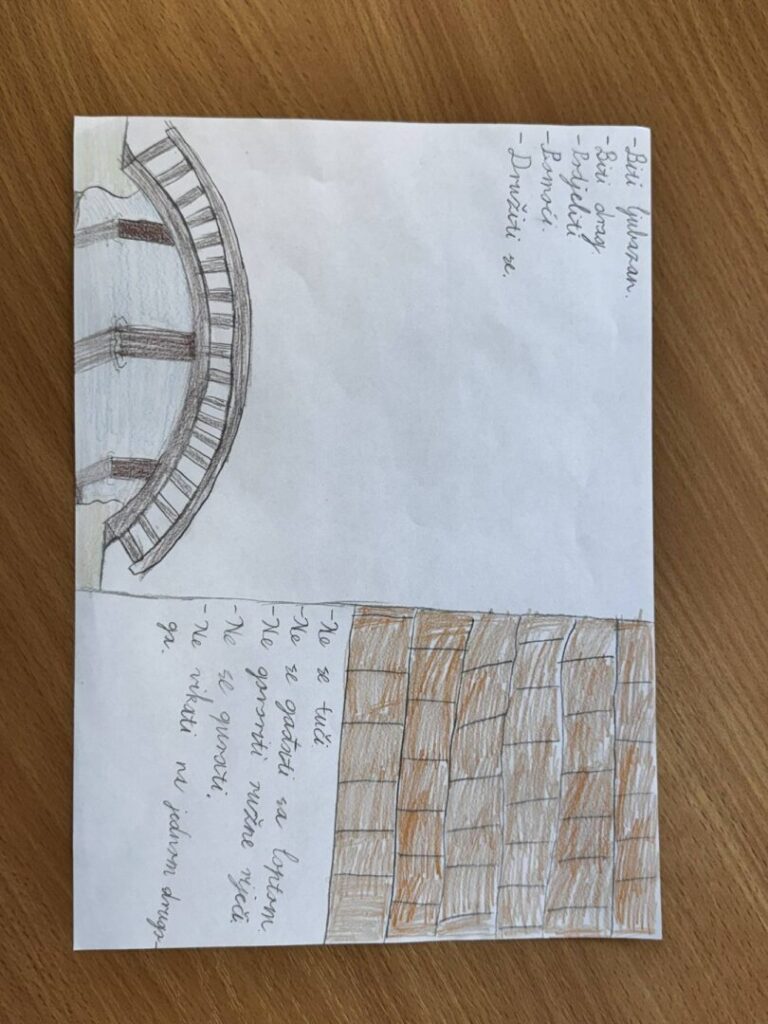 - Biti ljubazan.
- Biti drag.
- Podjeliti
- Pomoći.
- Družiti se.
- Ne se tući
- Ne se gađati sa loptom.
- Ne govoriti ružne riječi.
- Ne se gurati.
- Ne vikati na jedan drugo-
ga.